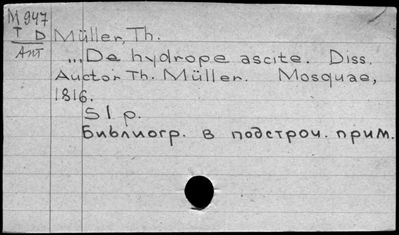 M 947
T D Müller, Th.
Ant „...De hydrope ascite. Diss.
Auctor Th. Müller. Mosquae,
1816.
51 p.
Библиогр. в подстроч. прим.